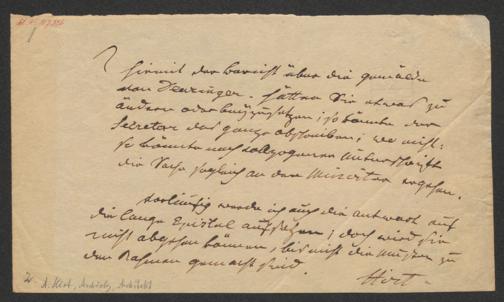 hiermit der Bericht über die gemälde
von Denzinger. Hätten Sie etwas zu
ändern oder beyzusetzen; so könnte der
Secretar das ganze abschreiben; wo nicht:
so könnte nach vollzogener Unterschrift
die Sache sogleich an den Minister ergehen.
vorläufig werde ich auch die antwort auf
die lange Epistel aufsetzen; doch wird sie
nicht abgehen können, bis nicht die Muster zu
den Rahmen gemacht sind.
Hirt.
A. Hirt, Archäolog, Architekt